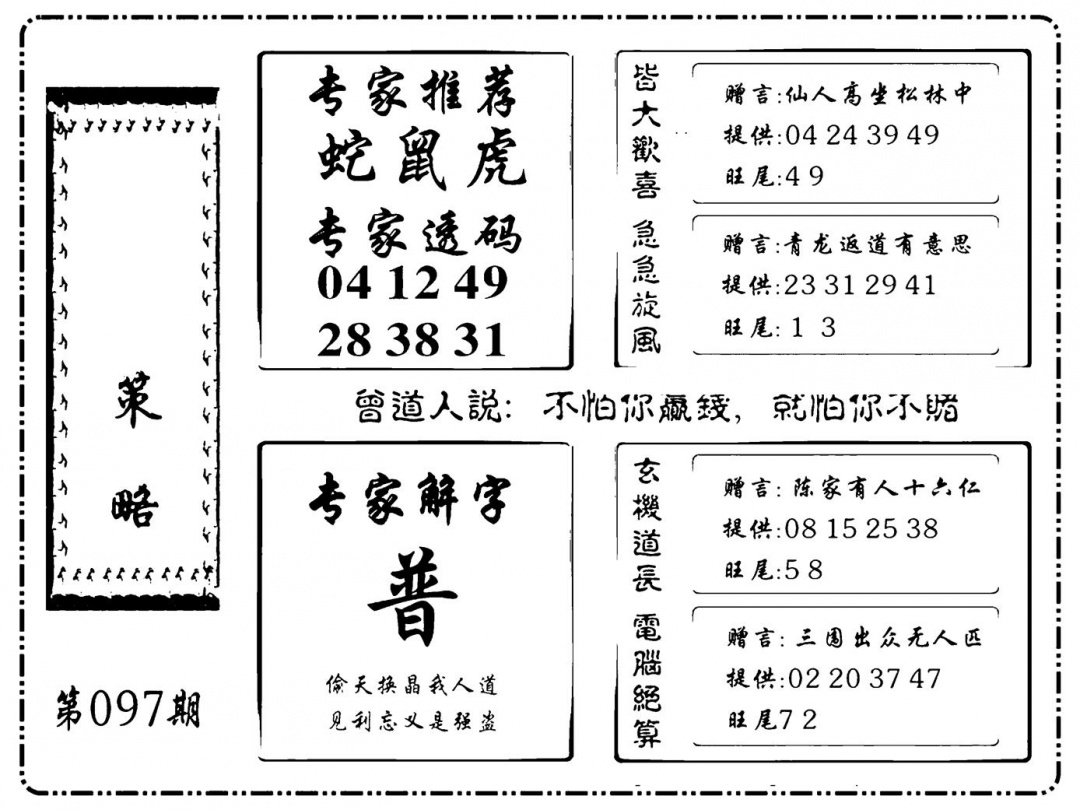 策略
第097期
专家推荐
蛇鼠虎
专家透码
04 12 49
28 38 31
皆大歡喜
赠言:仙人高坐松林中
提供:04 24 39 49
旺尾:4 9
急急旋風
赠言:青龙返道有意思
提供:23 31 29 41
旺尾: 1 3
曾道人説: 不怕你贏錢, 就怕你不賭
专家解字
普
偷天换晶我人道
见利忘义是强盗
玄機道長
赠言: 陈家有人十六仁
提供:08 15 25 38
旺尾:5 8
電腦絕算
赠言: 三围出众无人匹
提供:02 20 37 47
旺尾7 2